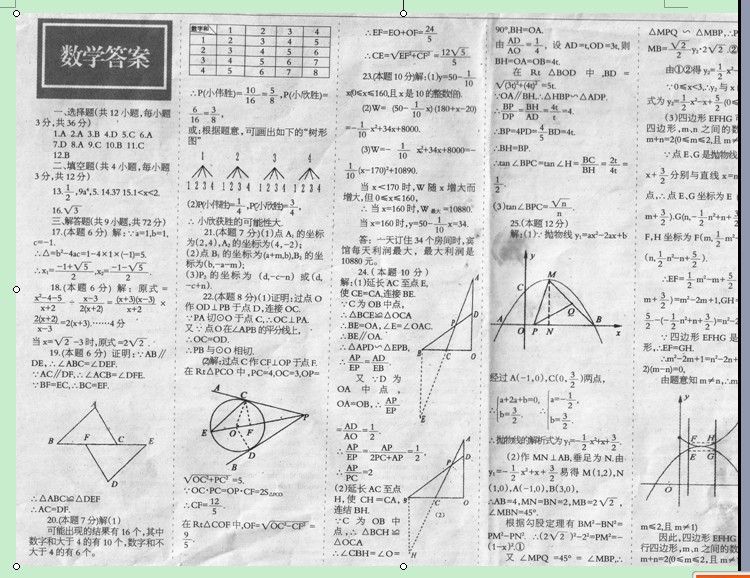 数学答案
一、选择题(共12小题,每小题
3分,共36分)
1.A 2.A 3.B 4.D 5.C 6.A
7.D 8.A 9.C 10.B 11.C
12.B
二、填空题(共4小题,每小题
3分,共12分)
13.1/2,9a⁴,5. 14.37 15.1<x<2.
16.√3
三、解答题(共9小题,共72分)
17.(本题6分) 解:∵a=1,b=1,
c=-1.
∴△=b²-4ac=1-4×1×(-1)=5.
∴x₁=(-1+√5)/2,x₂=(-1-√5)/2.
18.(本题6分) 解:原式=
(x²-4-5)/(x+2) ÷ (x-3)/(2(x+2)) = (x+3)(x-3)/(x+2) ×
2(x+2)/(x-3)=2(x+3).……4分
当x=√2-3时,原式=2√2.
19.(本题6分) 证明:∵AB∥
DE,∴∠ABC=∠DEF.
∵AC∥DF,∴∠ACB=∠DFE.
∵BF=EC,∴BC=EF.
A
B F C E
D
∴△ABC≌△DEF
∴AC=DF.
20.(本题7分)解(1)
可能出现的结果有16个,其中
数字和大于4的有10个,数字和不
大于4的有6个。
数字和 1 2 3 4
1 2 3 4 5
2 3 4 5 6
3 4 5 6 7
4 5 6 7 8
∴P(小伟胜)=10/16=5/8,P(小欣胜)=
6/16=3/8,
或:根据题意,可画出如下的“树形
图”
1 2 3 4
1 2 3 4 1 2 3 4 1 2 3 4 1 2 3 4
(2)P(小伟胜)=1/4,P(小欣胜)=3/4,
∴小欣获胜的可能性大.
21.(本题7分)(1)点A₁的坐标
为(2,4),A₂的坐标为(4,-2);
(2)点B₁的坐标为(a+m,b),B₂的坐
标为(b,-a-m);
(3)P₂的坐标为 (d,-c-n) 或(d,
-c+n).
22.(本题8分)(1)证明:过点O
作OD⊥PB于点D,连接OC.
∵PA切⊙O于点C,∴OC⊥PA.
又∵点O在∠APB的平分线上,
∴OC=OD.
∴PB与⊙O相切.
(2)解:过点C作CF⊥OP于点F.
在Rt△PCO中,PC=4,OC=3,OP=
A
C
E O F P
D
B
√(OC²+PC²)=5.
∵OC·PC=OP·CF=2S△PCO
∴CF=12/5.
在Rt△COF中,OF=√(OC²-CF²)=
9/5.
∴EF=EO+OF=24/5
∴CE=√(EF²+CF²)=12√5/5
23.(本题10分)解:(1)y=50-1/10
x(0≤x≤160,且x是10的整数倍).
(2)W=(50-1/10x)(180+x-20)
=-1/10x²+34x+8000.
(3)W=-1/10x²+34x+8000=-
1/10(x-170)²+10890.
当x<170时,W随x增大而
增大,但0≤x≤160,
∴当x=160时,W最大=10880.
当x=160时,y=50-1/10x=34.
答:一天订住34个房间时,宾
馆每天利润最大,最大利润是
10880元。
24.(本题10分)
(1)解:延长AC至点E,
使CE=CA,连接BE.
∵C为OB中点,
∴△BCE≌△OCA
∴BE=OA,∠E=∠OAC.
∴BE∥OA.
∴△APD∽△EPB,
∴AP/EP=AD/EB
又∵D为
OA中点,
OA=OB,∴AP/EP
=AD/AO=1/2.
∴AP/EP=AP/(2PC+AP)=1/2.
∴AP/PC=2
(2)延长AC至点
H,使CH=CA,
连结BH.
∵C为OB中
点,∴△BCH≌
△OCA
∴∠CBH=∠O=
A
P D
B C O
E
A
P D
B C O
(2)
H
90°,BH=OA.
由AD/AO=1/4,设AD=t,OD=3t,则
BH=OA=OB=4t.
在Rt△BOD中,BD=
√((3t)²+(4t)²)=5t.
∵OA∥BH,∴△HBP∽△ADP.
∴BP/DP=BH/AD=4t/t=4.
∴BP=4PD=4/5BD=4t.
∴BH=BP.
∴tan∠BPC=tan∠H=BC/BH=2t/4t=
1/2.
(3)tan∠BPC=√n/n.
25.(本题12分)
解:(1)∵抛物线y₁=ax²-2ax+b
y
M
C
Q
A O P N B x
经过A(-1,0),C(0,3/2)两点,
∴{a+2a+b=0, b=3/2. ∴{a=-1/2, b=3/2.
∴抛物线的解析式为y₁=-1/2x²+x+3/2.
(2)作MN⊥AB,垂足为N.由
y₁=-1/2x²+x+3/2易得M(1,2),N
(1,0),A(-1,0),B(3,0),
∴AB=4,MN=BN=2,MB=2√2,
∠MBN=45°.
根据勾股定理有BM²-BN²=
PM²-PN². ∴(2√2)²-2²=PM²=-
(1-x)².①
又∠MPQ=45°=∠MBP,∴
△MPQ∽△MBP,∴P
MB=√2/2y₂·2√2.②
由①②得y₂=1/2x²-
∵0≤x<3,∴y₂与x
式为y₂=1/2x²-x+5/2(0≤
(3)四边形EFHG可
四边形,m、n之间的数
m+n=2(0≤m≤2,且m≠
∵点E、G是抛物线
x+3/2分别与直线x=n
点,∴点E、G坐标为E
m+3/2),G(n,-1/2n²+n+3
F,H坐标为F(m,1/2m²-
(n,1/2n²-n+5/2).
∴EF=1/2m²-m+5/2
m+3/2)=m²-2m+1,GH=
5/2-(-1/2n²+n+3/2)=n²-2
∵四边形EFHG是
形,∴EF=GH.
∴m²-2m+1=n²-2n+
2)(m-n)=0,
由题意知m≠n,∴m
y
F H
E G
O
m≤2,且m≠1)
因此,四边形EFHG
行四边形,m、n之间的数
m+n=2(0≤m≤2,且m≠